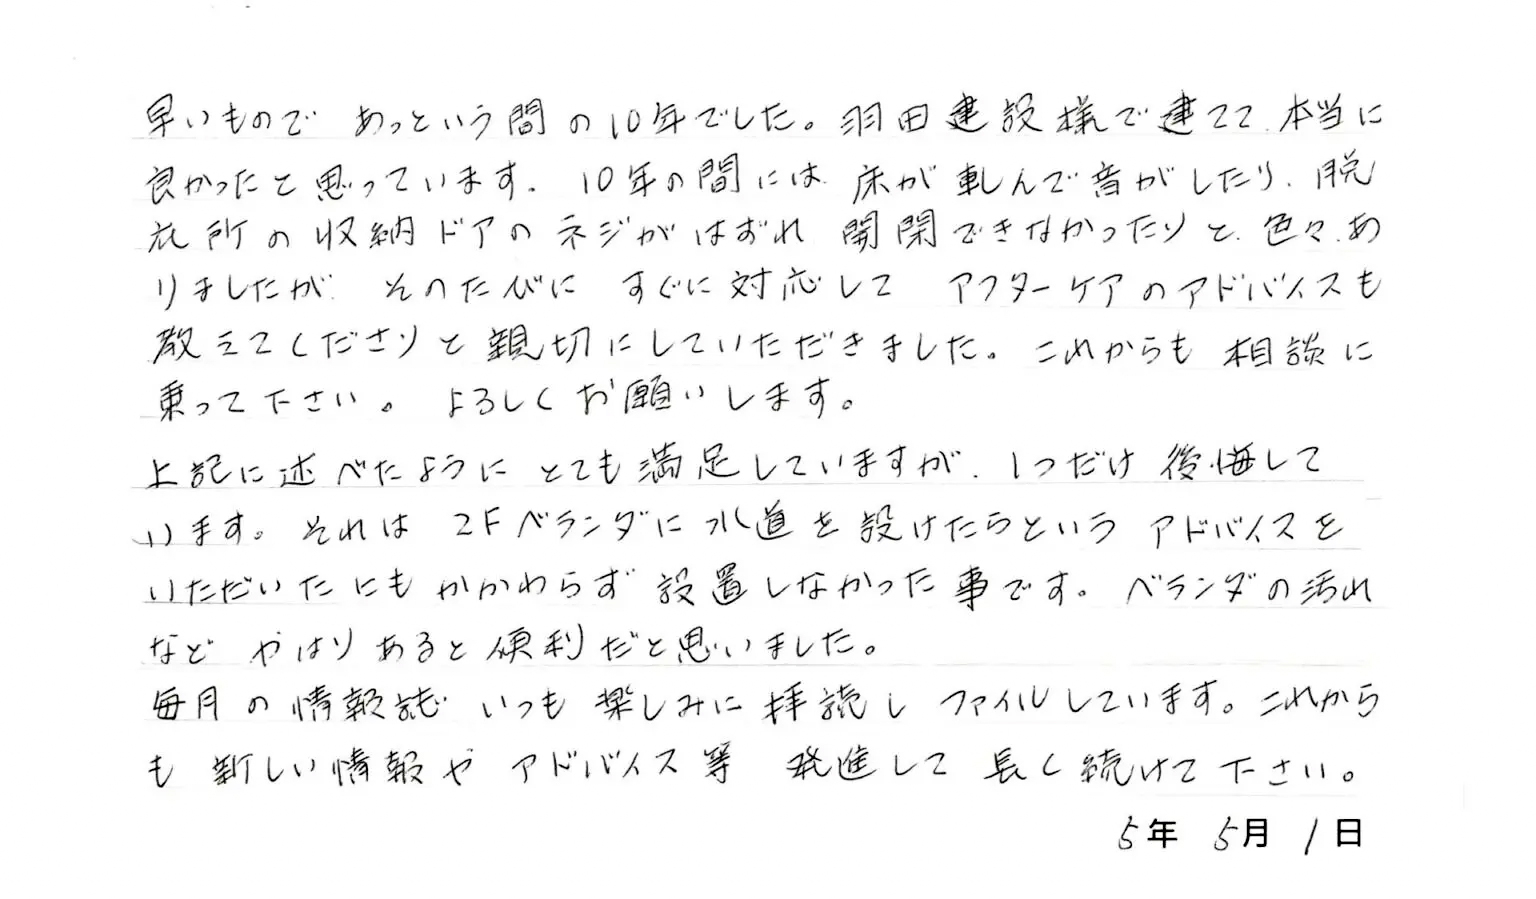 早いもので あっという間の10年でした。羽田建設様で建てて、本当に
良かったと思っています。10年の間には、床が軋んで音がしたり、脱
衣所の収納ドアのネジがはずれ 開閉できなかったりと、色々、あ
りましたが、そのたびに すぐに対応して アフターケアのアドバイスも
教えてくださりと親切にしていただきました。これからも相談に
乗って下さい。よろしくお願いします。
上記に述べたようにとても満足していますが、1つだけ後悔して
います。それは2Fベランダに水道を設けたらという アドバイスを
いただいたにもかかわらず設置しなかった事です。ベランダの汚れ
など やはりあると便利だと思いました。
毎月の情報誌 いつも楽しみに拝読し ファイルしています。これから
も新しい情報や アドバイス等 発進して 長く続けて下さい。
5年 5月 1日